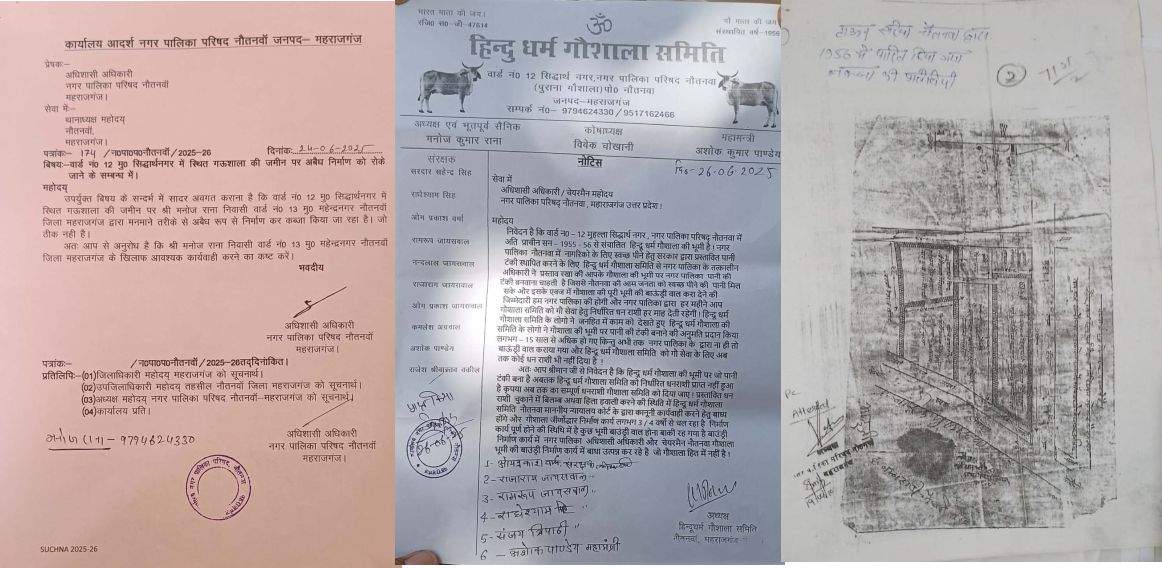 कार्यालय आदर्श नगर पालिका परिषद नौतनवाँ जनपद– महराजगंज
प्रेषकः–
अधिशासी अधिकारी
नगर पालिका परिषद नौतनवाँ
महराजगंज।
सेवा मेः–
थानाध्यक्ष महोदय
नौतनवाँ,
महराजगंज।
पत्रांकः– 174 /न०पा०प०नौतनवाँ/2025–26 दिनांकः 24-06-2025
विषयः–वार्ड नं० 12 मु० सिद्धार्थनगर में स्थित गऊशाला की जमीन पर अबैध निर्माण को रोके
जाने के सम्बन्ध में।
महोदय
उपर्युक्त बिषय के सन्दर्भ में सादर अवगत कराना है कि वार्ड नं० 12 मु० सिद्धार्थनगर में
स्थित गऊशाला की जमीन पर श्री मनोज राना निवासी वार्ड नं० 13 मु० महेन्द्रनगर नौतनवाँ
जिला महराजगंज द्वारा मनमाने तरीके से अबैध रूप से निर्माण कर कब्जा किया जा रहा है। जो
ठीक नही है।
अतः आप से अनुरोध है कि श्री मनोज राना निवासी वार्ड नं० 13 मु० महेन्द्रनगर नौतनवाँ
जिला महराजगंज के खिलाफ आवश्यक कार्यवाही करने का कष्ट करें।
भवदीय
अधिशासी अधिकारी
नगर पालिका परिषद नौतनवाँ
महराजगंज।
पत्रांकः– /न०पा०प०नौतनवाँ/2025–26तद्दिनांकित।
प्रतिलिपिः–(01)जिलाधिकारी महोदय महराजगंज को सूचनार्थ।
(02)उपजिलाधिकारी महोदय तहसील नौतनवाँ जिला महराजगंज को सूचनार्थ।
(03)अध्यक्ष महोदय नगर पालिका परिषद नौतनवाँ–महराजगंज को सूचनार्थ।
(04)कार्यालय प्रति।
अधिशासी अधिकारी
नगर पालिका परिषद नौतनवाँ
महराजगंज।
9794624330
SUCHNA 2025-26
भारत माता की जय।
रजि० स०-जी-47614
गौ माता की जय
संस्थापित वर्ष–1956
ॐ
हिन्दु धर्म गौशाला समिति
वार्ड नं० 12 सिद्धार्थ नगर,नगर पालिका परिषद नौतनवा
(पुराना गौशाला)पो० नौतनवा
जनपद–महराजगंज
सम्पर्क नं०– 9794624330/9517162466
अध्यक्ष एवं भूतपूर्व सैनिक
मनोज कुमार राना
कोषाध्यक्ष
विवेक चोखानी
महामन्त्री
अशोक कुमार पाण्डेय
संरक्षक
सरदार सहेन्द्र सिंह
राधेश्याम सिंह
ओम प्रकाश वर्मा
रामरूप जायसवाल
नन्दलाल जायसवाल
राजाराम जायसवाल
ओम प्रकाश जायसवाल
कमलेश अग्रवाल
अशोक पाण्डेय
राजेश श्रीवास्तव वकील
नोटिस
26-06-2025
सेवा में
अधिशासी अधिकारी/चेयरमैन महोदय
नगर पालिका परिषद नौतनवा, महाराजगंज उत्तर प्रदेश।
महोदय
निवेदन है कि वार्ड न० – 12 मुहल्ला सिद्धार्थ नगर, नगर पालिका परिषद नौतनवा में
अति प्राचीन सन – 1955 -56 से संचालित हिन्दू धर्म गौशाला की भूमि है। नगर
पालिका नौतनवा में नागरिको के लिए स्वच्छ पीने हेतु सरकार द्वारा प्रस्तावित पानी
टंकी स्थापित करने के लिए हिन्दू धर्म गौशाला समिति से नगर पालिका के तत्कालीन
अधिकारी ने प्रस्ताव रखा की आपके गौशाला की भूमि पर नगर पालिका पानी की
टंकी बनवाना चाहती है जिससे नौतनवा की आम जनता को स्वच्छ पीने की पानी मिल
सके और इसके एवज में गौशाला की पूरी भूमि की बाऊंड्री वाल करा देने की
जिम्मेदारी हम नगर पालिका की होगी और नगर पालिका द्वारा हर महीने आप
गौशाला समिति को गौ सेवा हेतु निर्धारित धन राशी हर माह देती रहेगी। हिन्दू धर्म
गौशाला समिति के लोगो ने जनहित में काम को देखते हुए हिन्दू धर्म गौशाला की
समिति के लोगो ने गौशाला की भूमि पर पानी की टंकी बनाने की अनुमति प्रदान किया
लगभग – 15 साल से अधिक हो गए किन्तु अभी तक नगर पालिका के द्वारा ना ही तो
बाऊंड्री वाल कराया गया और हिन्दू धर्म गौशाला समिति को गौ सेवा के लिए अब
तक कोई धन राशी भी नहीं दिया है।
अतः आप श्रीमान जी से निवेदन है कि हिन्दू धर्म गौशाला की भूमि पर जो पानी
टंकी बना है अबतक हिन्दू धर्म गौशाला समिति को निर्धारित धनराशी प्राप्त नहीं हुआ
है कृपया अब तक का सम्पूर्ण धनराशी गौशाला समिति को दिया जाए। प्रस्तावित धन
राशी चुकाने में बिलम्ब अथवा हिला हवाली करने की स्थिति में हिन्दू धर्म गौशाला
समिति नौतनवा माननीय न्यायालय कोर्ट के द्वारा कानूनी कार्यवाही करने हेतु बाध्य
होंगे और गौशाला जीर्णोद्धार निर्माण कार्य लगभग 3/4 वर्षो से चल रहा है निर्माण
कार्य पूर्ण होने की स्थिति में है कुछ भूमी बाउंड्री वाल होना बाकी रह गया है बाउंड्री
निर्माण कार्य में नगर पालिका अधिशासी अधिकारी और चेयरमैन नौतनवा गौशाला
भूमी की बाउंड्री निर्माण कार्य में बाधा उत्पन्न कर रहे है जो गौशाला हित में नहीं है।
2- राजाराम जायसवाल
3- रामरूप जायसवाल
4- राधेश्याम सिंह
5- संजय त्रिपाठी
6 – अशोक पाण्डेय महामंत्री
अध्यक्ष
हिन्दूधर्म गौशाला समिति
नौतनवा, महराजगंज
1956 में पारित किया गया
2
Attested